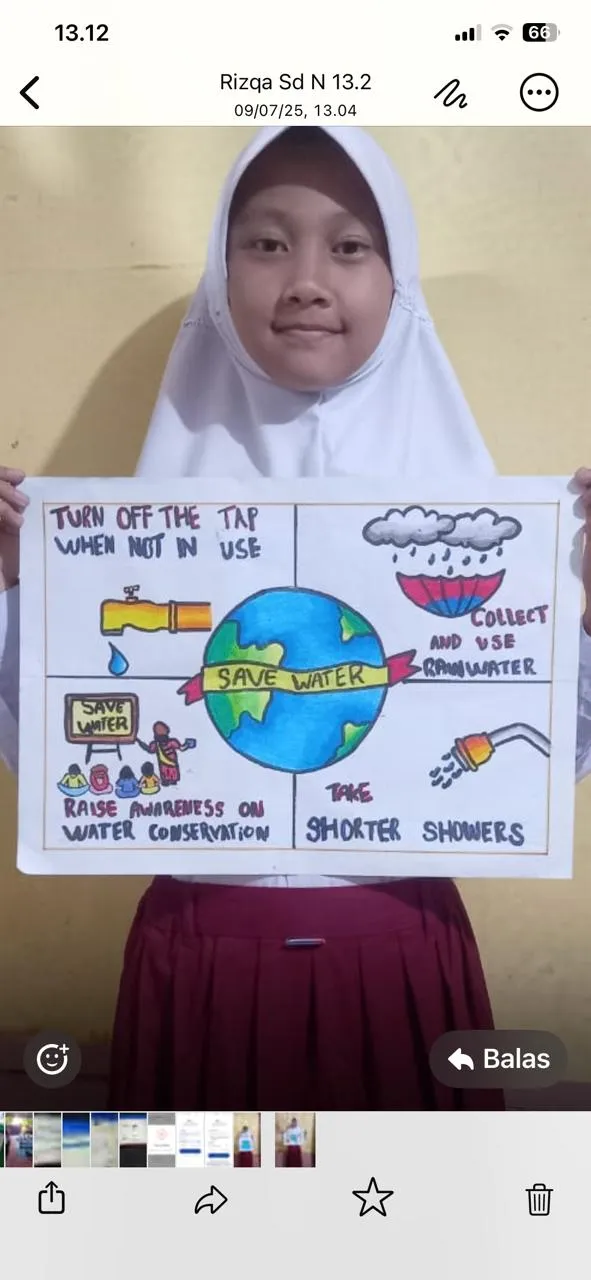 13.12
66
Rizqa Sd N 13.2
09/07/25, 13.04
TURN OFF THE TAP
WHEN NOT IN USE
COLLECT
AND USE
RAWWATER
SAVE WATER
SAVE
WATER
RAISE AWARENESS ON
WATER CONSERVATION
TAKE
SHORTER SHOWERS
Balas